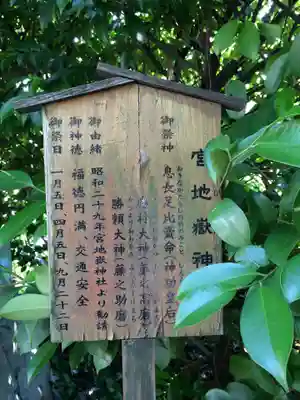 宮地嶽神
御祭神
息長足比賣命(神功皇后)
村大神(
勝頼大神(藤之助磨)
御由緒 昭和二十九年宮地嶽神社より勧請
御神徳 福徳円満 交通安全
御祭日 一月五日、四月五日、九月二十二日